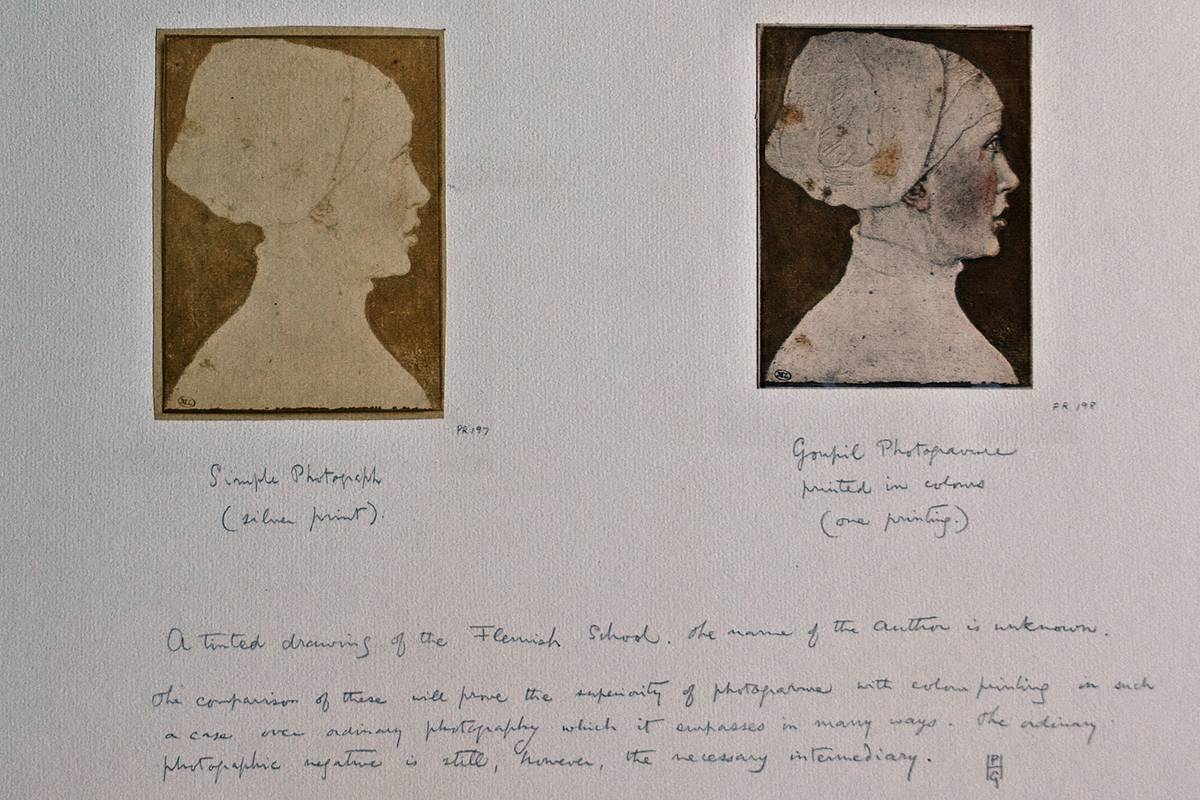 PR.197
PR.198
Simple Photograph
(silver print).
Goupil Photogravure
printed in colours
(one printing.)
A tinted drawing of the Flemish School. The name of the author is unknown.
The comparison of these will prove the superiority of photogravure with colour printing in such
a case over ordinary photography which it surpasses in many ways. The ordinary
photographic negative is still, however, the necessary intermediary.